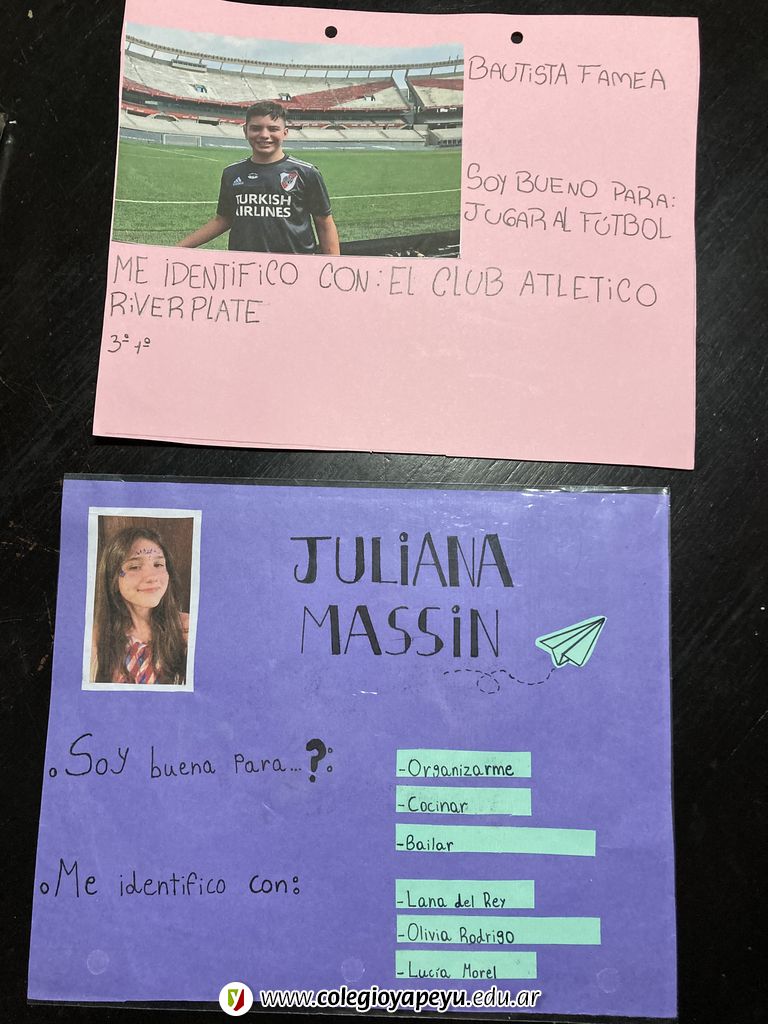 BAUTISTA FAMEA
SOY BUENO PARA:
JUGAR AL FÚTBOL
TURKISH
AIRLINES
ME IDENTIFICO CON: EL CLUB ATLETICO
RIVER PLATE
3º 1º
JULIANA
MASSIN
Soy buena para...?:
-Organizarme
-Cocinar
-Bailar
Me identifico con:
-Lana del Rey
-Olivia Rodrigo
-Lucía Morel
www.colegioyapeyu.edu.ar